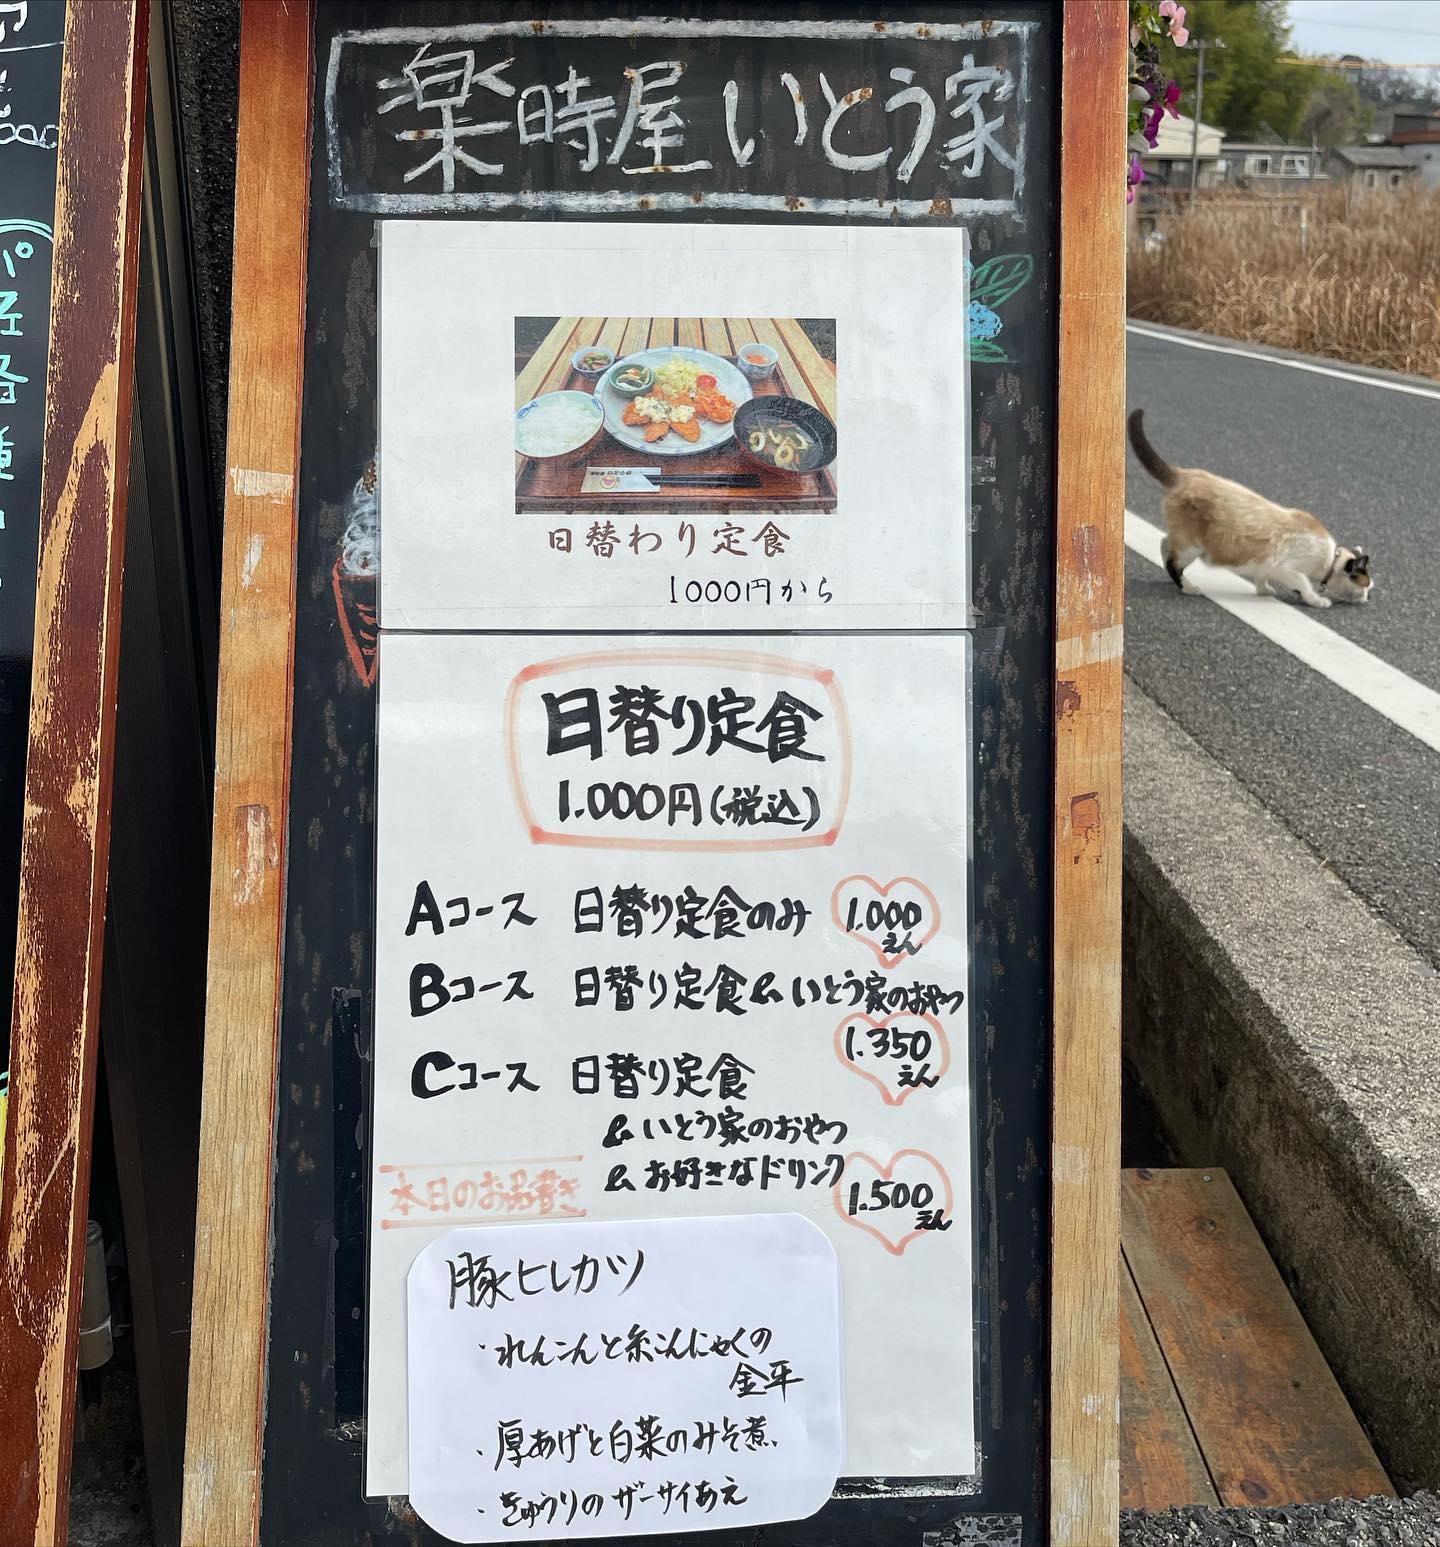 楽時屋 いとう家
日替わり定食
1000円から
日替り定食
1.000円(税込)
Aコース 日替り定食のみ 1.000えん
Bコース 日替り定食&いとう家のおやつ
1.350えん
Cコース 日替り定食
&いとう家のおやつ
&お好きなドリンク 1.500えん
本日のお品書き
豚ヒレカツ
・れんこんと糸こんにゃくの
金平
・厚あげと白菜のみそ煮
・きゅうりのザーサイあえ